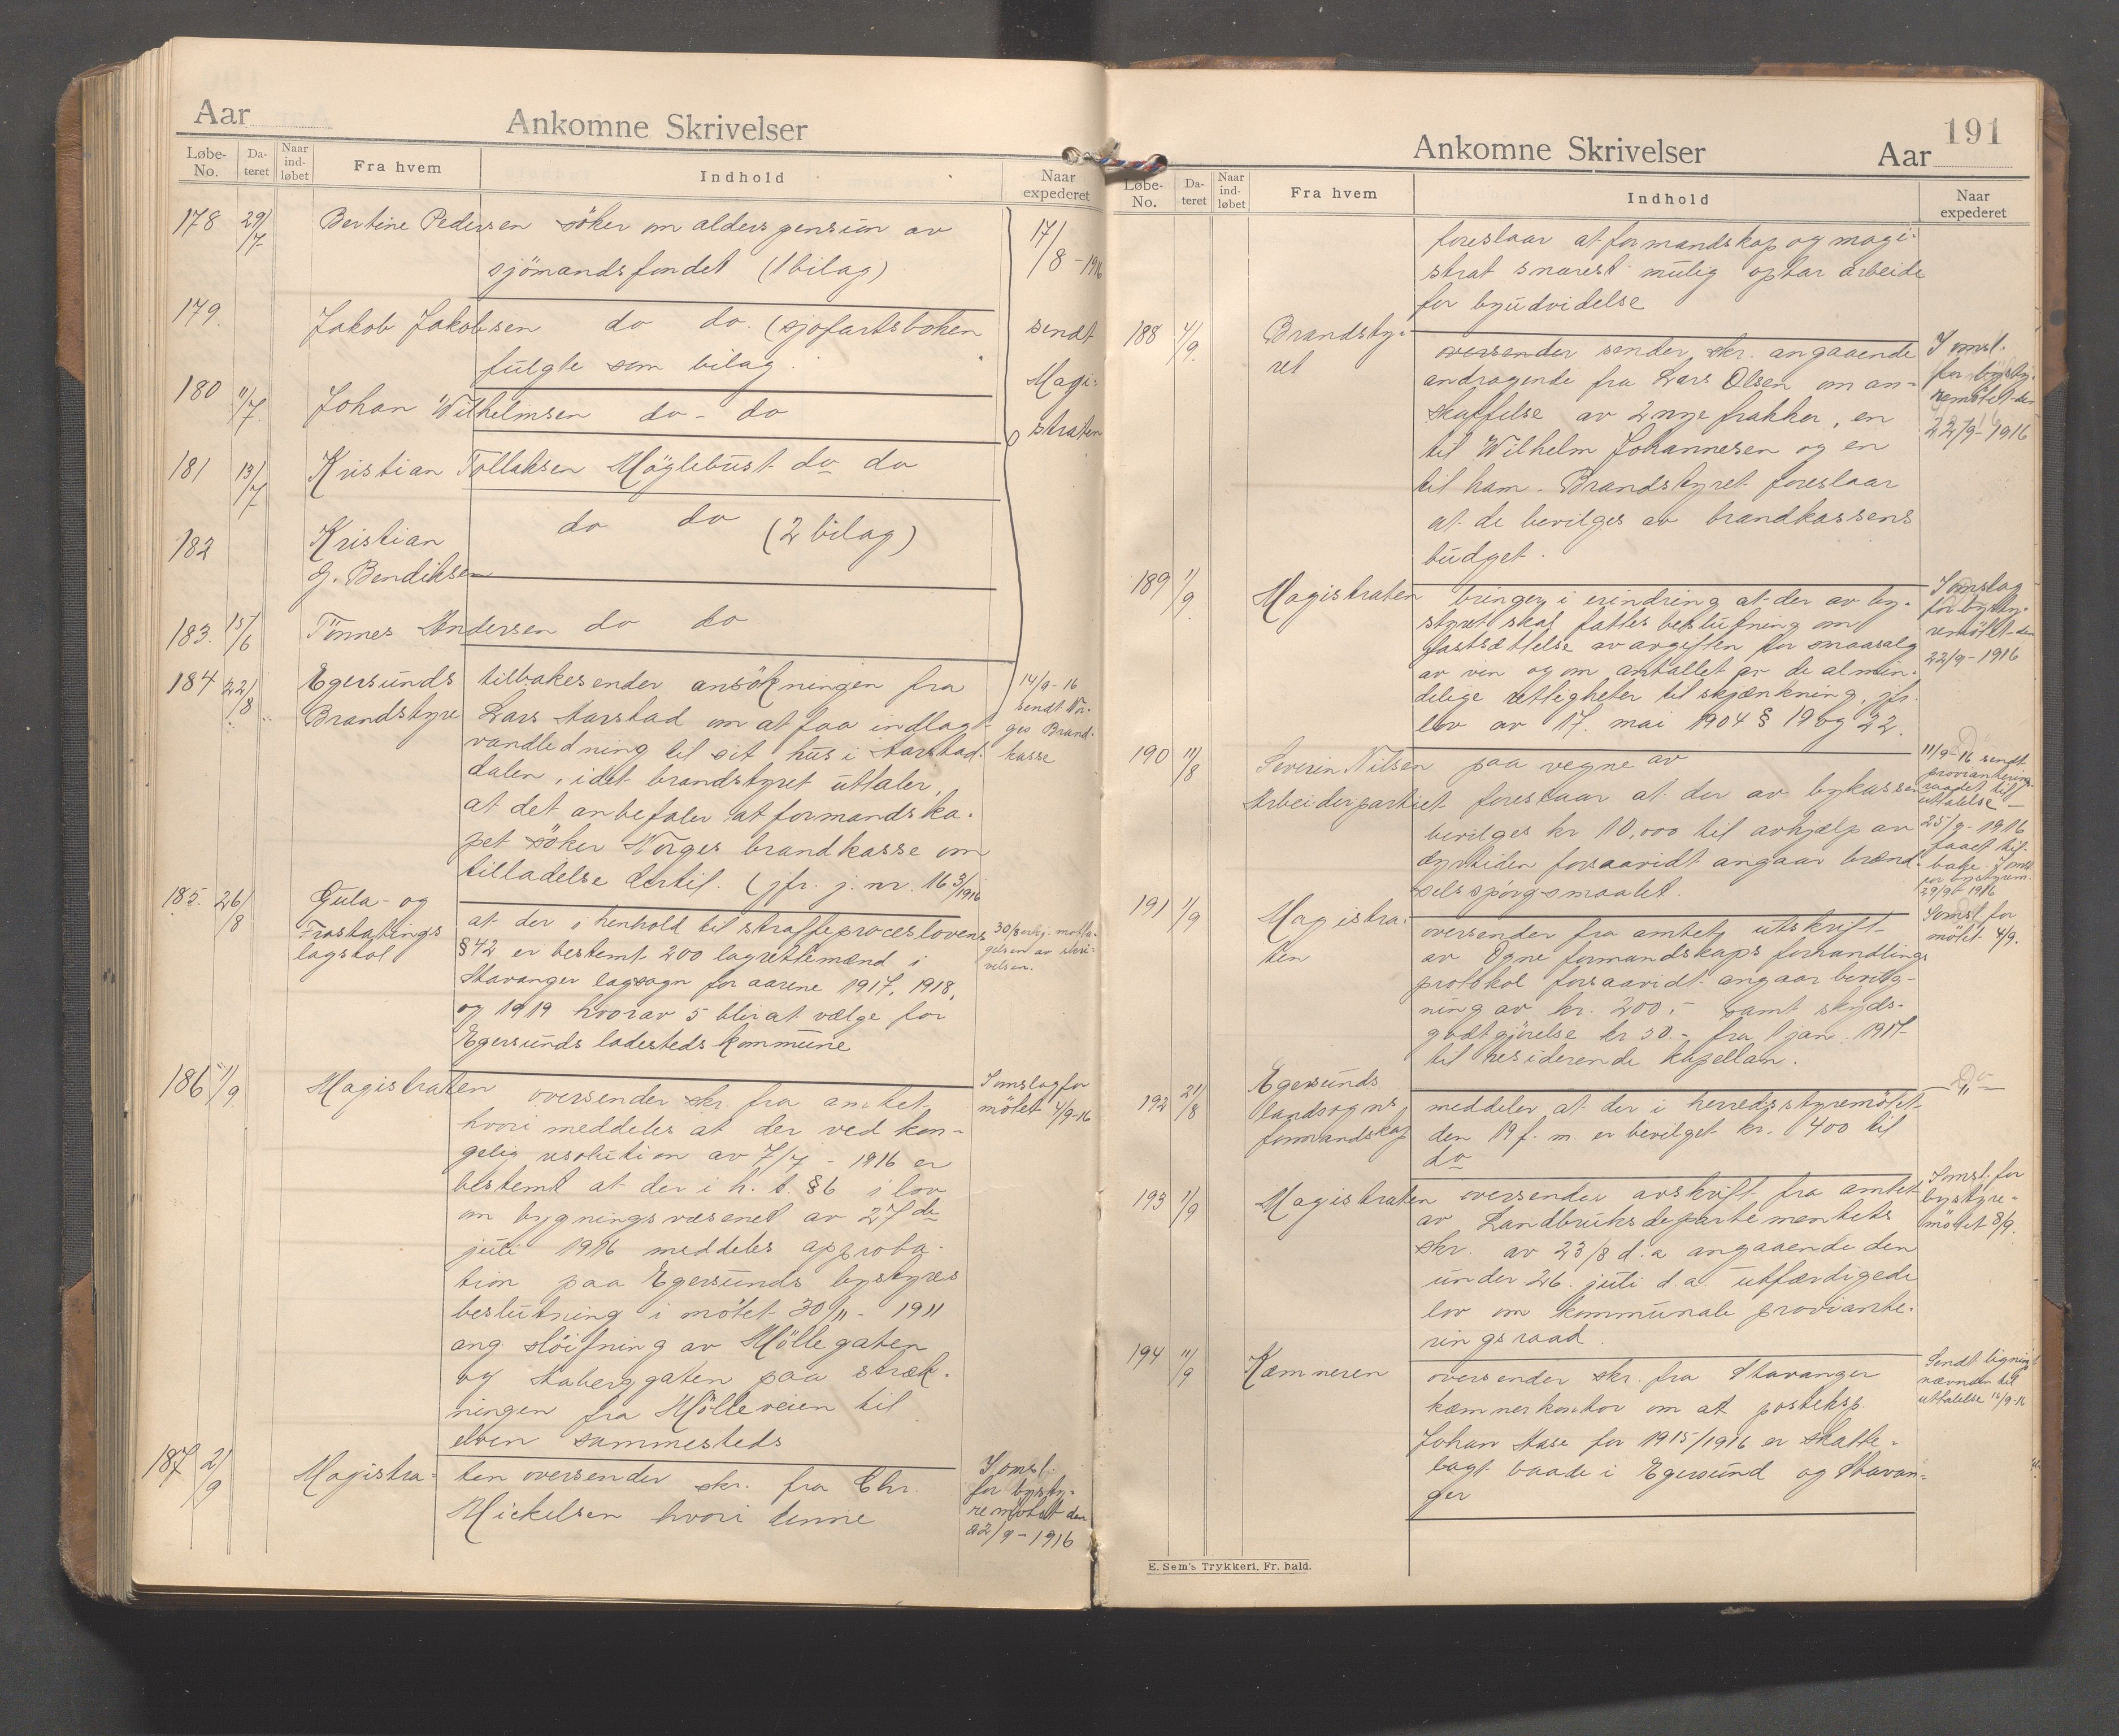 Aar
Ankomne Skrivelser
Løbe-No. Da-teret Naar ind-løbet Fra hvem Indhold Naar expederet
178 29/7 Bertine Pedersen söker om alderspension av 17/8-1916
sjömandsfondet (1 bilag)
179. Jakob Jakobsen do do. (sjøfartsboken sendt
fulgte som bilag. Magi-
180 11/7 Johan Wilhelmsen do - do straten
181 13/7 Kristian Tollaksen Möglebust do do
182 Kristian do do (2 bilag)
G. Bendiksen
183. 15/6 Tönnes Andersen do do
184 22/8 Egersunds tilbakesender ansökningen fra 14/9-16
Brandstyre Lars Aarstad om at faa indlagt sendt Nor-
vandledning til sit hus i Aarstad- ges Brand-
dalen, idet brandstyret uttaler, kasse
at det anbefaler at formandska-
pet söker Norges brandkasse om
tilladelse dertil. (jfr. j. nr. 163/1916
185. 26/8 Gula- og
Frostatings at der i henhold til straffeproceslovens 30/8 erkj. motta-
lagstol §42 er bestemt 200 lagrettemænd i gelsen av skri-
Stavanger lagsogn for aarene 1917, 1918, velsen.
og 1919 hvorav 5 blir at vælge for
Egersunds ladesteds kommune
186 1/9 Magistraten oversender skr. fra amtet I omslag for
hvori meddeles at der ved kon- mötet 4/9-16
gelig resolution av 7/7 - 1916 er
bestemt at der i h. t. §6 i lov
om bygningsvæsenet av 27de
juli 1916 meddeles approba-
tion paa Egersunds bystyres
beslutning i mötet 30/11 - 1911
ang. slöifning av Möllegaten
og Aaberggaten paa stræk-
ningen fra Mölleveien til
elven sammesteds
187 2/9 Magistra- ten oversender skr. fra Chr. I omsl.
Mickelsen hvori denne for bysty-
remötet den
22/9-1916
191
Ankomne Skrivelser
Aar
Løbe-No. Da-teret Naar ind-løbet Fra hvem Indhold Naar expederet
foreslaar at formandskap og magi-
strat snarest mulig optar arbeide
for byudvidelse
188 4/9. Brandsty- oversender sender skr. angaaende I omsl.
ret andragende fra Lars Olsen om an- for bysty-
skaffelse av 2 nye frakker, en remötet den
til Wilhelm Johannesen og en 22/9-1916
til ham. Brandstyret foreslaar
at de bevilges av brandkassens
budget.
189 11/9 Magistraten bringer i erindring at der av by- I omslag
styret skal fattes beslutning om for bysty-
fastsættelse av avgiften for smaasalg remötet den
av vin og om antallet av de almin- 22/9-1916
delige rettigheter til skjænkning, jfr.
lov av 17. mai 1904 § 19 og 22.
190 11/8 Severin Nilsen paa vegne av 11/9-16 sendt
Arbeiderpartiet foreslaar at der av bykassen provianterings-
raadet til uttalelse -
bevilges kr 10,000 til avhjælp av 25/9-1916
dyrtiden forsaavidt angaar brænd- faaet til-
selsspörgsmaalet. bake. I omsl.
for bystyrem.
29/9-1916
191 1/9 Magistra- oversender fra amtet utskrift I omsl. for
ten av Ogne formandskaps forhandlings mötet 4/9.
protokol forsaavidt angaar bevilg-
ning av kr. 200.- samt skyds-
godtgjörelse kr 50.- fra 1 jan. 1917
til residerende kapellan.
192 21/8 Egersunds
landsogns meddeler at der i herredsstyremötet — " —
formandskap den 19 f. m. er bevilget kr. 400 til
do
193 11/9 Magistraten oversender avskrift fra amtet I omsl. for
av Landbruksdepartementets bystyre-
skr. av 23/8 d.a angaaende den mötet 8/9.
under 26. juli d.a. utfærdigede
lov om kommunale proviante-
ringsraad.
194 11/9 Kæmneren oversender skr. fra Stavanger Sendt lignings
kæmnerkontor om at posteksp. nævnden til
Johan Aase for 1915/1916 er skatte- uttalelse
lagt baade i Egersund og Stavan-
ger
E. Sem's Trykkeri, Fr. hald.